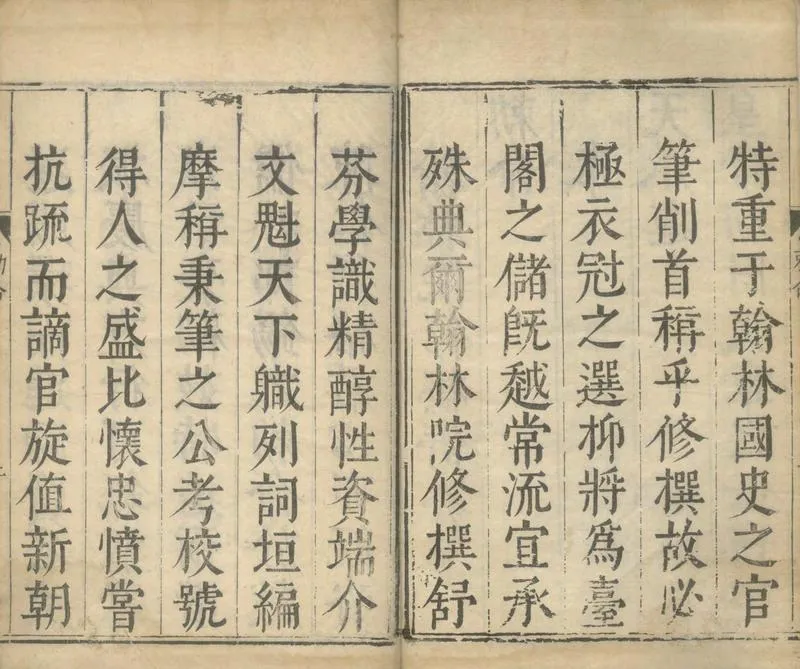 特重于翰林國史之官
筆削首稱乎修撰故必
極衣冠之選抑將爲臺
閣之儲旣越常流宜承
殊典爾翰林院修撰舒
芬學識精醇性資端介
文魁天下職列詞垣編
摩稱秉筆之公考校號
得人之盛比懷忠憤嘗
抗疏而謫官旋值新朝